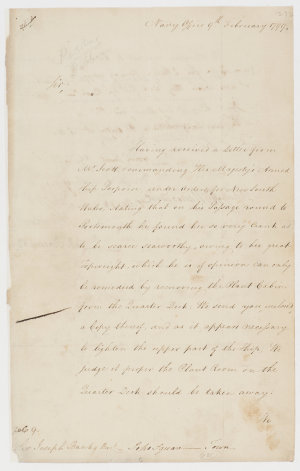 Navy Office 9th February 1799.
Sir
Having received a Letter from
Mr Scott commanding His Majesty's Armed
Ship Porpoise, under orders for New South
Wales, stating that on his Passage round to
Portsmouth he found her so very Crank as
to be scarce seaworthy, owing to her great
Topweight, which he is of opinion can only
be remedied by removing the Plant Cabin
from the Quarter Deck; We send you inclosed
a Copy thereof, and as it appears necessary
to lighten the upper part of the Ship, We
judge it proper the Plant Room on the
Quarter Deck should be taken away.
We
Sir Joseph Banks Bt. Soho Square Town